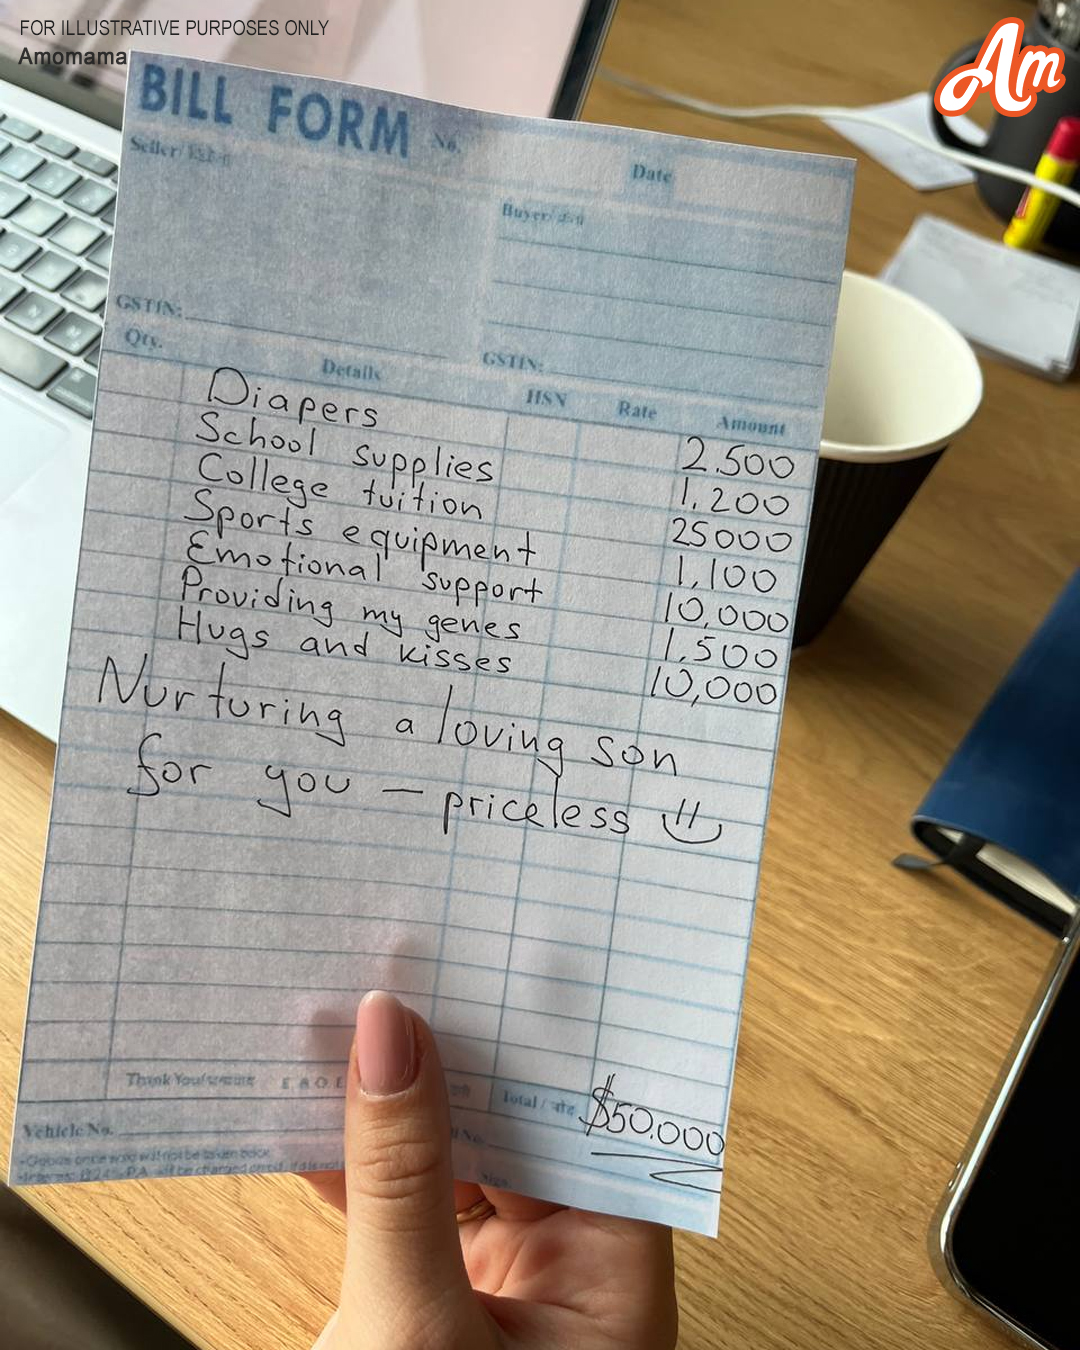 FOR ILLUSTRATIVE PURPOSES ONLY
Amomama
Am
BILL FORM No.
Seller
Date
Buyer
GSTIN:
GSTIN:
Qty. Details HSN Rate Amount
Diapers 2.500
School supplies 1.200
College tuition 25000
Sports equipment 1,100
Emotional support 10,000
Providing my genes 1,500
Hugs and kisses 10,000
Nurturing a loving son
for you — priceless
Thank You E & O.E
Total / जोड़ $50.000
Vehicle No.
No.
Sign.